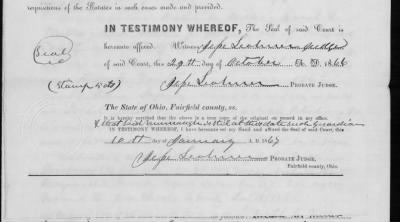 requisitions of the Statutes in such cases made and provided.
IN TESTIMONY WHEREOF, The Seal of said Court is
(Seal) hereunto affixed. Witness Jesse Leohner Judge
of said Court, this 29th day of October A. D. 1866
(Stamp 5 cts) Jesse Leohner PROBATE JUDGE.
The State of Ohio, Fairfield county, ss.
It is hereby certified that the above is a true copy of the original on record in my office.
& that said is still at this date such Guardian
IN TESTIMONY WHEREOF, I have hereunto set my Hand and affixed the Seal of said Court, this
10th day of January A. D. 1867
Jesse Leohner PROBATE JUDGE.
Fairfield county, Ohio.